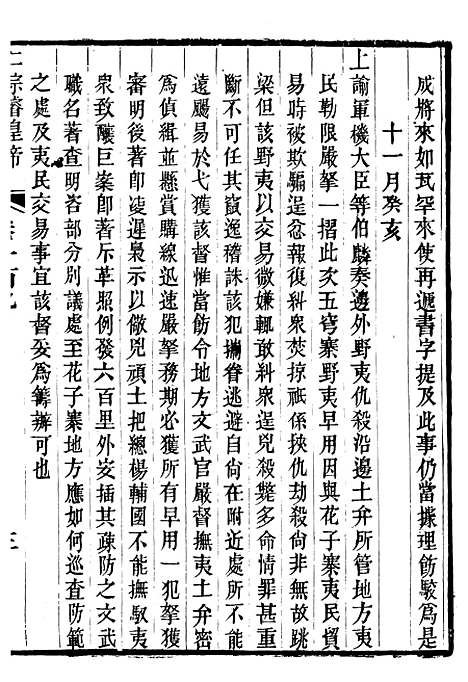 成將來如芃罕來使再遞書字提及此事仍當據理飭駁爲是
十一月癸亥
上諭軍機大臣等伯麟奏邊外野夷仇殺沿邊土弁所管地方夷
民勒限嚴拏一摺此次五窮寨野夷早用因與花子寨夷民貿
易時被欺騙逞忿報復糾衆焚掠祗係挾仇劫殺尚非無故跳
梁但該野夷以交易微嫌輒敢糾衆逞兇殺斃多命情罪甚重
斷不可任其竄逸稽誅該犯攜眷逃避自尚在附近處所不能
遠颺易於弋獲該督惟當飭令地方文武官嚴督撫夷土弁密
爲偵緝並懸賞購線迅速嚴拏務期必獲所有早用一犯拏獲
審明後著卽凌遲梟示以儆兇頑土把總楊輔國不能撫馭夷
衆致釀巨案卽著斥革照例發六百里外安插其疎防之文武
職名著查明咨部分別議處至花子寨地方應如何巡查防範
之處及夷民交易事宜該督妥爲籌辦可也
仁宗睿皇帝
卷一百九
三